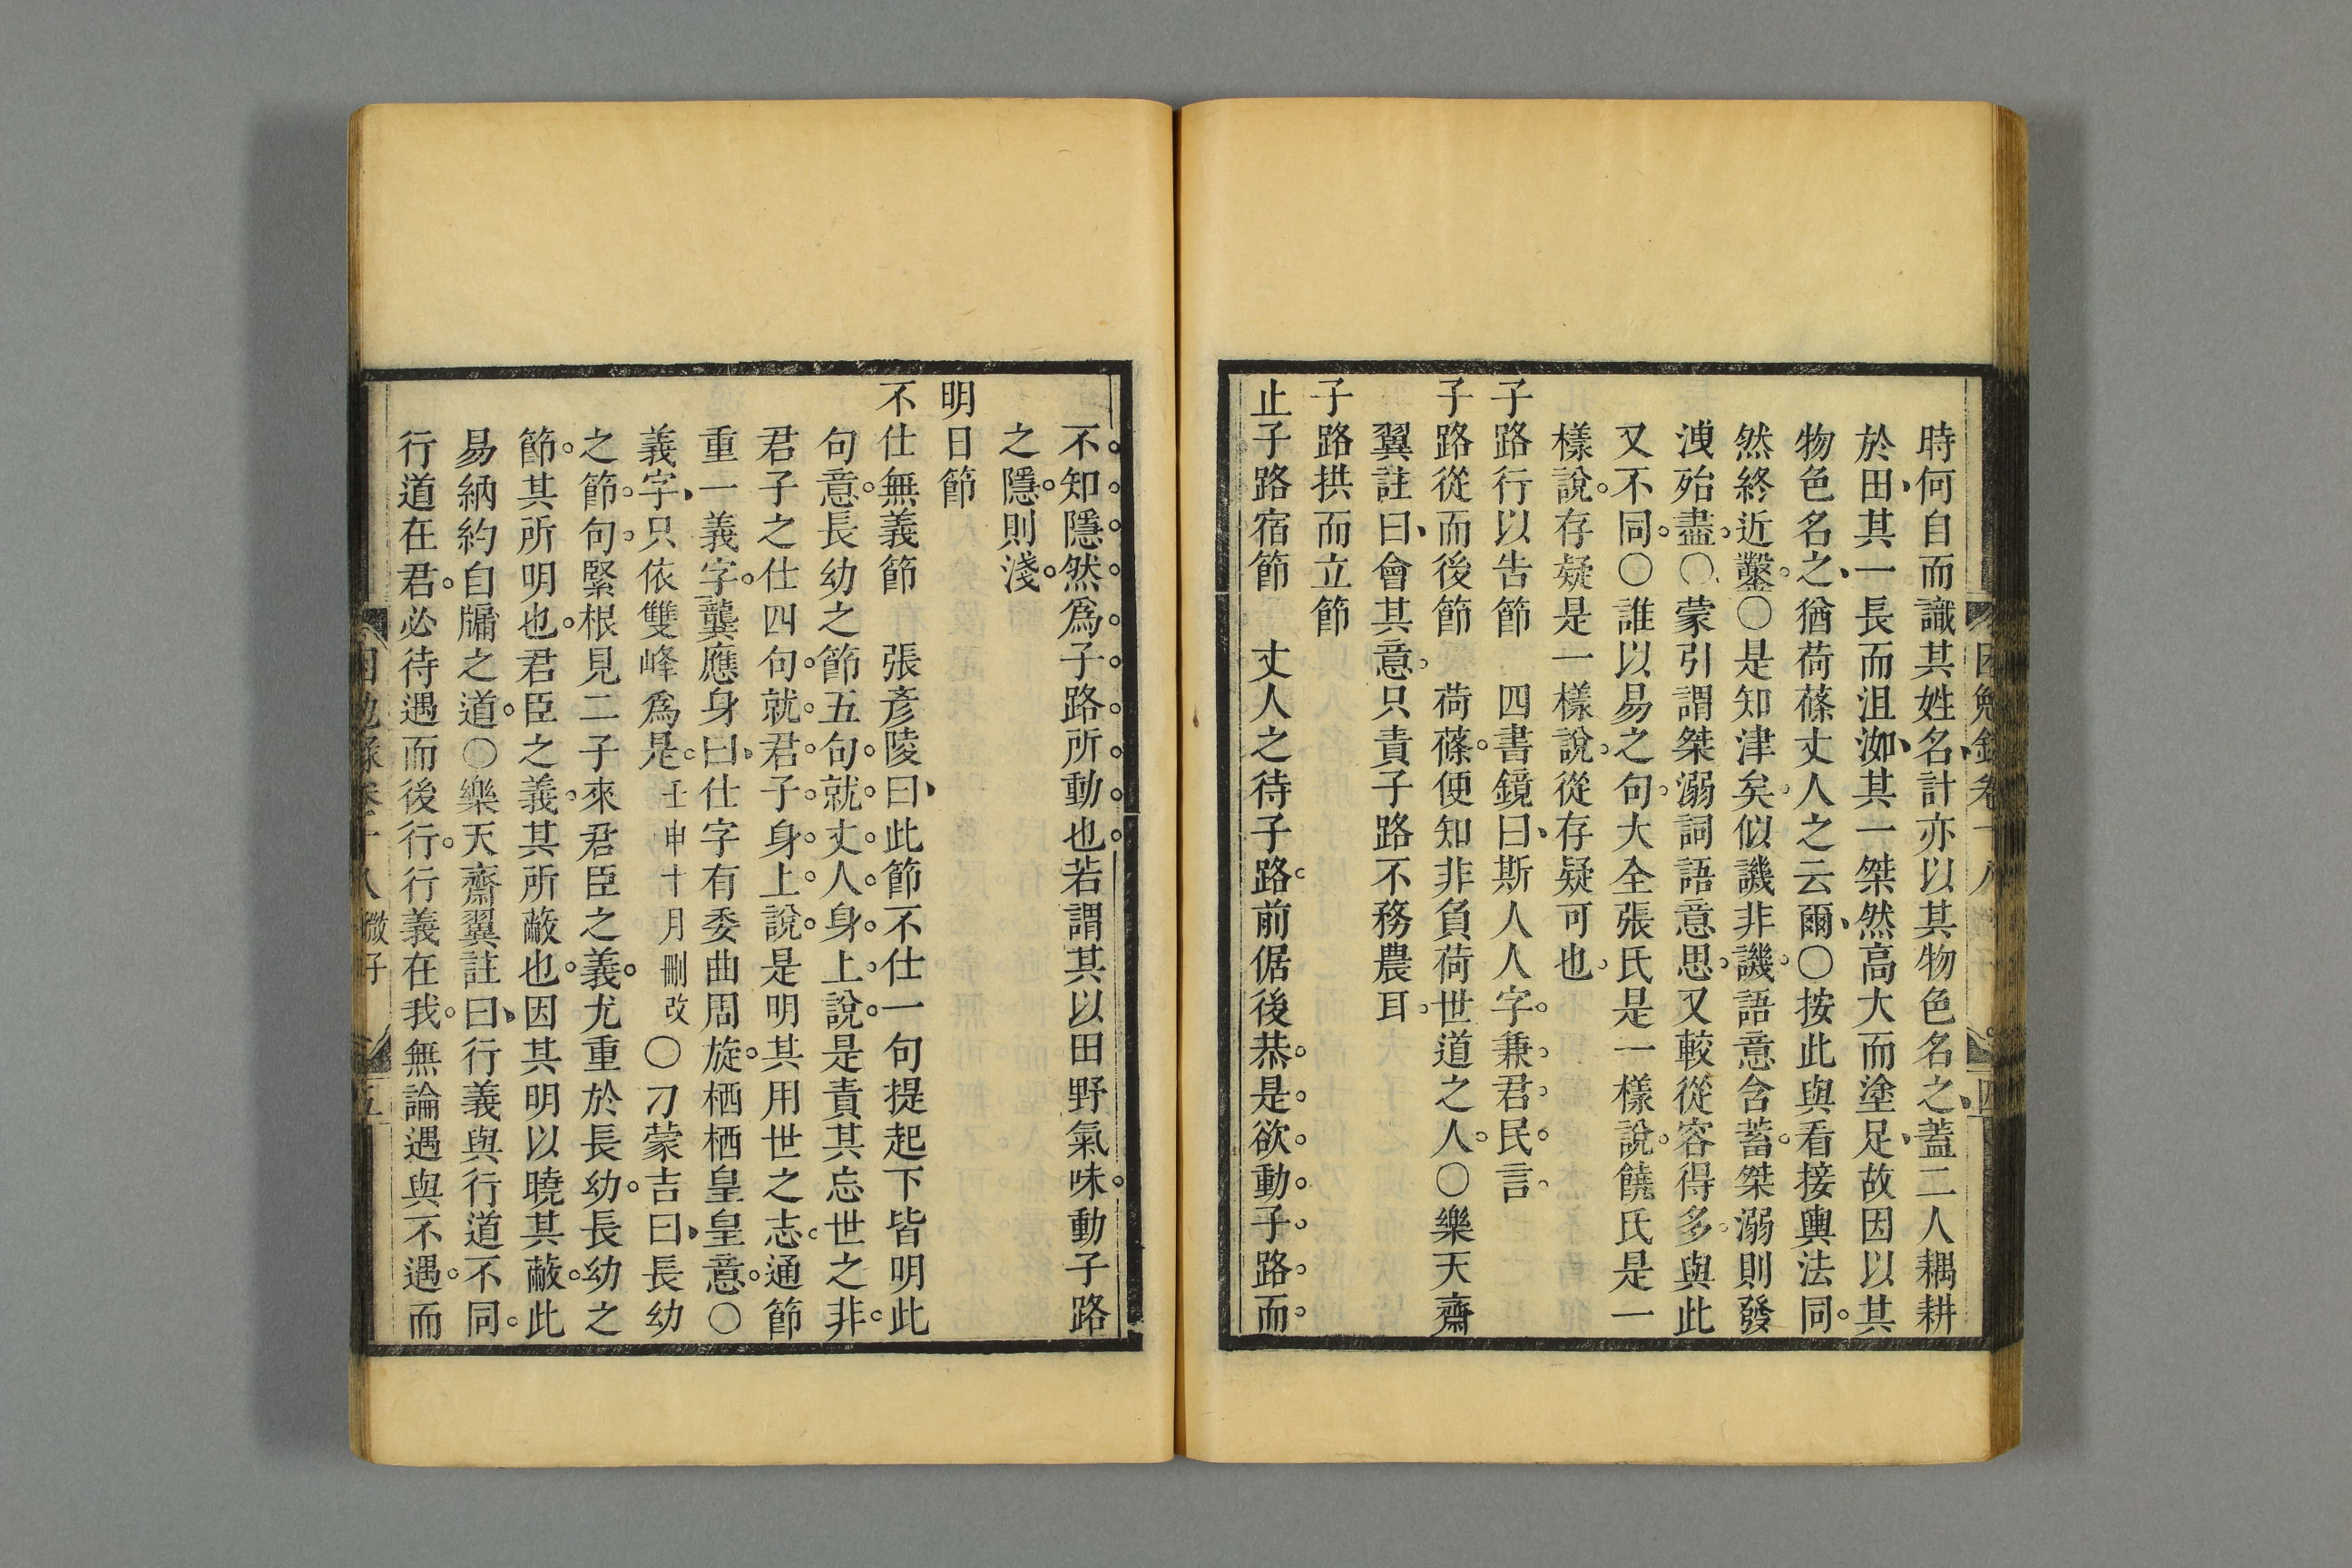 時何自而識其姓名計亦以其物色名之蓋二人耦耕
於田其一長而沮洳其一桀然高大而塗足故因以其
物色名之猶荷蓧丈人之云爾○按此與看接輿法同
然終近鑿○是知津矣似譏非譏語意含蓄桀溺則發
洩殆盡○蒙引謂桀溺詞語意思又較從容得多與此
又不同○誰以易之句大全張氏是一樣說饒氏是一
樣說存疑是一樣說從存疑可也
子路行以告節 四書鏡曰斯人人字兼君民言
子路從而後節 荷蓧便知非負荷世道之人○樂天齋
翼註曰會其意只責子路不務農耳
子路拱而立節
止子路宿節 丈人之待子路前倨後恭是欲動子路而
不知隱然爲子路所動也若謂其以田野氣味動子路
之隱則淺
明日節
不仕無義節 張彥陵曰此節不仕一句提起下皆明此
句意長幼之節五句就丈人身上說是責其忘世之非
君子之仕四句就君子身上說是明其用世之志通節
重一義字龔應身曰仕字有委曲周旋栖栖皇皇意○
義字只依雙峰爲是壬申十月刪改○刁蒙吉曰長幼
之節句緊根見二子來君臣之義尤重於長幼長幼之
節其所明也君臣之義其所蔽也因其明以曉其蔽此
易納約自牖之道○樂天齋翼註曰行義與行道不同
行道在君必待遇而後行行義在我無論遇與不遇而